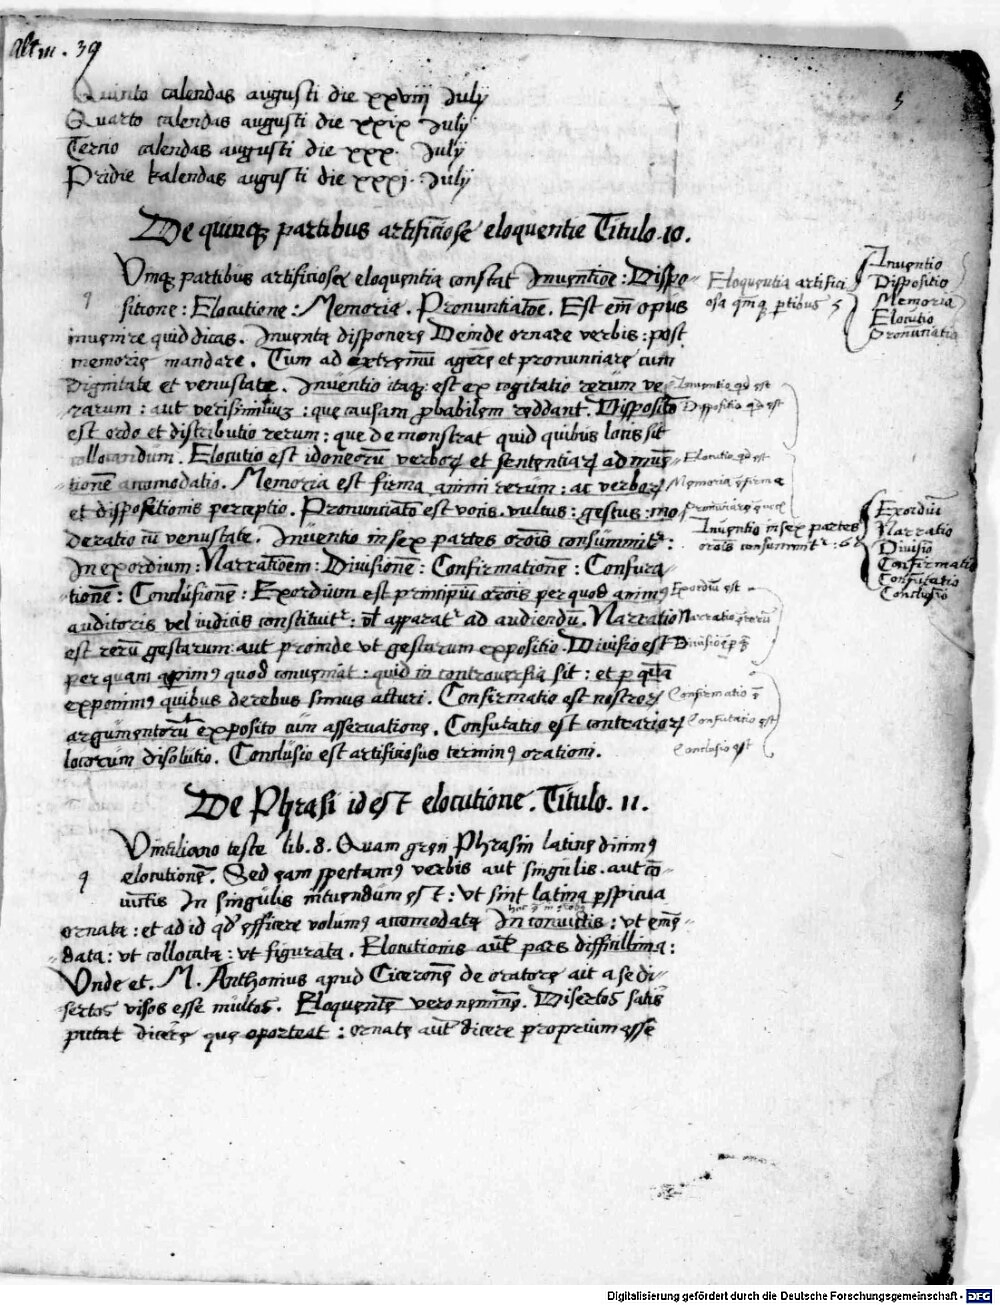 Altm. 39
5
Quinto calendas augusti die xxviij July
Quarto calendas augusti die xxix July
Tertio calendas augusti die xxx. July
Pridie kalendas augusti die xxxj. July
De quinqȝ partibus artificiose eloquentie Titulo. 10.
q Vinqȝ partibus artificiosa eloquentia constat Inuentioē: Dispo-
sitione: Elocutione: Memoria. Pronuntiatōe. Est em̄ opus
inuenire quid dicas. Inuenta disponere Deinde ornare verbis: post
memorię mandare. Tum ad extremū agere et pronunciare cum
dignitate et venustate. Inuentio itaqȝ est excogitatio rerum ve-
rarum: aut verisimiliuȝ: que causam ꝓbabilem reddant. Dispositō
est ordo et distributio rerum: que demonstrat quid quibus locis sit
collocandum. Elocutio est idoneorū verboꝝ et sententiaꝝ ad inuē-
tionē accomodatio. Memoria est firma animi rerum: ac verboꝝ
et dispositionis perceptio. Pronunciatō est vocis. vultus: gestus: mo
deratio cū venustate. Inuentio in sex partes orōis consummitʳ:
In exordium: Narratiōem: Divisionē: Confirmationē: Confuta
tionē: Conclusionē: Exordium est principiū orōis per quod animꝯ
auditoris vel iudicis constituitʳ: vl̄ apparatʳ ad audiendū. Narratio
est rerū gestarum: aut proinde vt gestarum expositio. Divisio est
per quam aperimꝯ quod conueniat: quid in controuersia sit: et ꝑ quā
exponimꝯ quibus de rebus simus acturi. Confirmatio est nostroꝝ
argumentorū expositio cum asseruatione. Confutatio est contrarioꝝ
locorum disolutio. Conclusio est artificiosus terminꝯ orationi.
Eloquentia artifici
osa quinqȝ ꝑtibus 5
Inuentio
Dispositio
Memoria
Elocutio
Pronunciatio
Inuentio qd est
Dispositio qd est
Elocutio qd est
Memoria ē firma
Inuentio in sex partes
orōis consummitʳ: 6
Exordiū
Narratio
Divisio
Confirmatio
Confutatio
Conclusio
Exordiū est
Narratio ē rerū
Divisio ē ꝑ q̄
Confirmatio ē
Confutatio est
Conclusio est
De Phrasi id est elocutione. Titulo. 11.
q Vintiliano teste lib. 8. Quam greci Phrasin latine dicimꝯ
elocutionē. Sed eam spectamꝯ verbis aut singulis. aut cō-
iunctis In singulis intuendum est: vt sint latina ꝑspicua
ornata: et ad id qd efficere volumꝯ accomodata In coniunctis: vt emē-
data: vt collocata: vt figurata. Elocutionis aut̄ pars difficillima:
Vnde et. M. Anthonius apud Ciceronē de oratore ait a se di-
sertos visos esse multos. Eloquentē vero neminē. Disertos satis
putat dicere que oporteat: ornate aut̄ dicere proprium esse
Digitalisierung gefördert durch die Deutsche Forschungsgemeinschaft - DFG